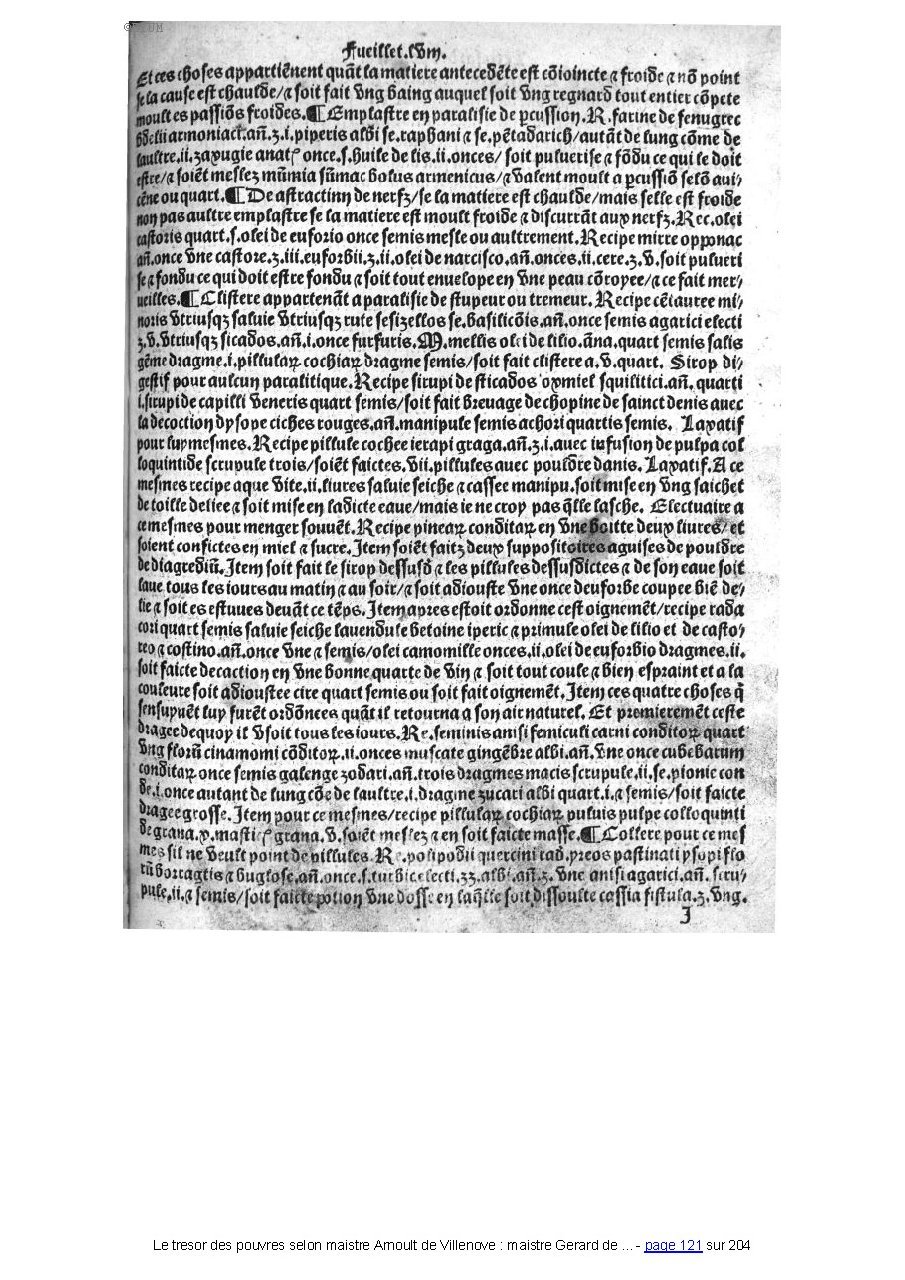 Fueillet.lviii.
Et ces choses appartiẽnent quãt la matiere antecedẽte est cõioincte ⁊ froide ⁊ nõ point
se la cause est chaulde/⁊ soit fait vng baing auquel soit vng regnard tout entier cõpete
moult es passiõs froides.¶Emplastre en paralisie de p̱cussion.R.farine de fenugrec
bdelii armoniaci.añ.ʒ.i.piperis albi se.raphani ⁊ se.pẽtadarich/autãt de lung cõme de
laultre.ii.ʒaxugie anat᷒ once.s.huile de lis.ii.onces/ soit puluerise ⁊ fõdu ce qui le doit
estre/⁊ soiẽt meslez mũmia sũmac bolus armenicus/⁊ valent moult a p̱cussiõ selõ aui/
cẽne ou quart.¶De astractinn de nerfz/se la matiere est chaulde/mais selle est froide
non pas aultre emplastre se la matiere est moult froide ⁊ discurrãt aux nerfz.Rec.olei
castoris quart.s.olei de euforio once semis mesle ou aultrement.Recipe mirre opponac
añ.once vne castore.ʒ.iii.euforbii.ʒ.ii.olei de narcisco.añ.onces.ii.cere.ʒ.v.soit pulueri
se ⁊ fondu ce qui doit estre fondu ⁊ soit tout enuelope en vne peau cõroyee/⁊ ce fait mer/
ueilles.¶Clistere appartenãt a paralisie de stupeur ou tremeur. Recipe cẽtauree mi/
noris vtriusqꝫ saluie vtriusqꝫ rute sesizellos se.basilicõis.añ.once semis agarici electi
ʒ.v.vtriusqꝫ sicados.añ.i.once furfuris.M.mellis olei de lilio.ãna.quart semis salis
gẽme dragme.i.pillulaꝝ cochiaꝝ dragme semis/soit fait clistere a.v.quart. Sirop di/
gestif pour aulcun paralitique.Recipe sirupi de sticados oxmiel squilitici.añ. quarti
i.sirupi de capilli veneris quart semis/soit fait breuage de chopine de sainct denis auec
la decoction dysope ciches rouges.añ.manipule semis achori quartis semis. Laxatif
pour luy mesmes.Recipe pillule cochee ierapi graga.añ.ʒ.i.auec infusion de pulpa col
loquintide scrupule trois/soiẽt faictes.vii.pillules auec pouldre danis.Laxatif.A ce
mesmes recipe aque vite.ii.liures saluie seiche ⁊ cassee manipu.soit mise en vng saichet
de toille deliee ⁊ soit mise en ladicte eaue/mais ie ne croy pas q̃lle lasche. Electuaire a
ce mesmes pour menger souuẽt.Recipe pineaꝝ conditaꝝ en vne boitte deux liures/et
soient confictes en miel ⁊ sucre.Item soiẽt faitz deux suppositoires aguises de pouldre
de diagrediñ.Item soit fait le sirop dessusd̃ ⁊ les pillules dessusdictes ⁊ de son eaue soit
laue tous les iours au matin ⁊ au soir/⁊ soit adiouste vne once deuforbe coupee biẽ de/
lie ⁊ soit es estuues deuãt ce tẽps.Item apres estoit ordonne cest oignemẽt/recipe rada
cori quart semis saluie seiche lauendule betoine iperic ⁊ primule olei de lilio et de casto/
reo ⁊ costino.añ.once vne ⁊ semis/olei camomille onces.ii.olei de euforbio dragmes.ii.
soit faicte decaction en vne bonne quarte de vin ⁊ soit tout coule ⁊ bien espraint et a la
couleure soit adioustee cire quart semis ou soit fait oignemẽt.Item ces quatre choses q̃
sensuyuẽt luy furẽt ordõnees quãt il retourna a son air naturel. Et premieremẽt ceste
dragee dequoy il vsoit tous les iours.Re.seminis anisi feniculi carni conditoꝝ quart
vng florũ cinamomi cõditoꝝ.ii.onces muscate gingẽbre albi.añ.vne once cubebarum
conditaꝝ once semis galenge zodari.añ.trois dragmes macis scrupule.ii.se.pionie con
de.i.once autant de lung cõe de laultre.i.dragme zucari albi quart.i.⁊ semis/soit faicte
dragee grosse.Item pour ce mesmes/recipe pillulaꝝ cochiaꝝ puluis pulpe colloquinti
de grana.x.masti᷒ grana.v.soiẽt meslez ⁊ en soit faicte masse.¶Collere pour ce mes
mes sil ne veult point de pillules.Re.polipodii quercini rad.preos pastinati ysopi flo
rũ borragtis ⁊ buglose.añ.once.s.turbic electi.ʒʒ.albi.añ.ʒ.vne anisi agarici.añ.scru/
pule.ii.⁊ semis/soit faicte potion vne dosse en laq̃lle soit dissoulte cassia fistula.ʒ.vng.
I
Le tresor des pouvres selon maistre Arnoult de Villenove : maistre Gerard de ... - page 121 sur 204